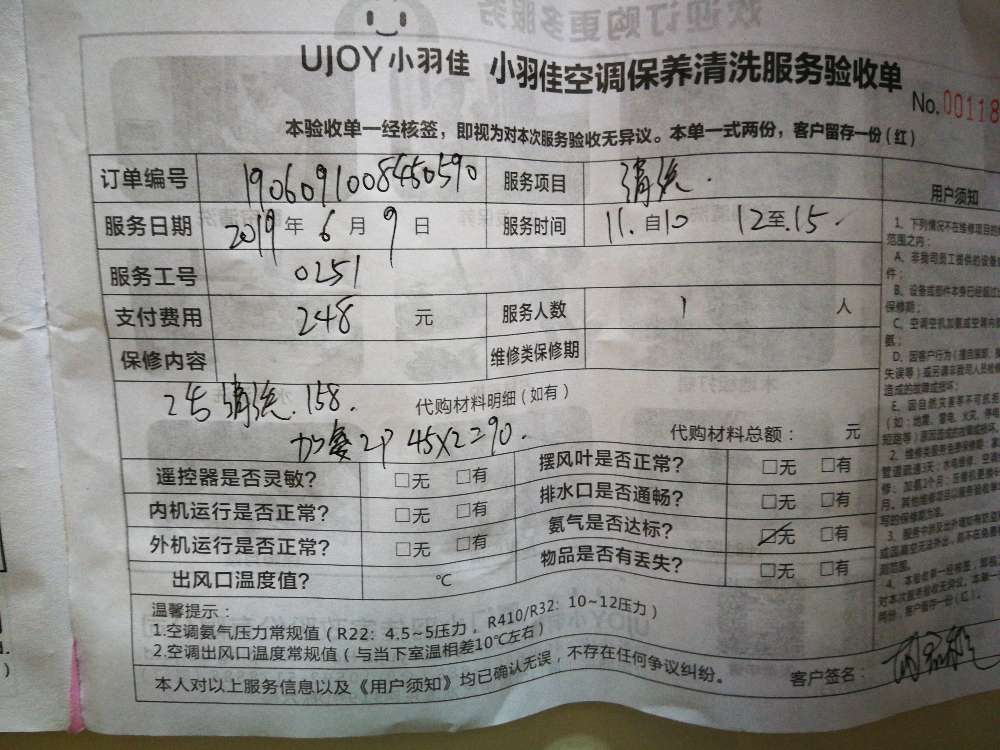 UJOY小羽佳 小羽佳空调保养清洗服务验收单
No.00118
本验收单一经核签，即视为对本次服务验收无异议。本单一式两份，客户留存一份（红）
订单编号 1906091008450590 服务项目 清洗.
服务日期 2019年6月9日 服务时间 11.自10 12至.15.
服务工号 0251
支付费用 248 元 服务人数 1 人
保修内容 维修类保修期
2台清洗.158. 代购材料明细（如有）
加氨2P 45X2=90. 代购材料总额： 元
遥控器是否灵敏？ □无 □有 摆风叶是否正常？ □无 □有
内机运行是否正常？ □无 □有 排水口是否通畅？ □无 □有
外机运行是否正常？ □无 □有 氨气是否达标？ ☑无 □有
出风口温度值？ ℃ 物品是否有丢失？ □无 □有
温馨提示：
1.空调氨气压力常规值（R22：4.5~5压力，R410/R32：10~12压力）
2.空调出风口温度常规值（与当下室温相差10℃左右）
本人对以上服务信息以及《用户须知》均已确认无误，不存在任何争议纠纷。 客户签名：
用户须知
1、下列情况不在维修项目的
范围之内：
A、非我司员工提供的设备
件；
B、设备或部件本身已经超过
保修期；
C、空调空机加氨或空调内
氨；
D、因客户行为（擅自拆卸、
失误等）或另请非我司人员检修
造成的故障或损坏；
E、因自然灾害等不可抗
（如：地震、雷电、火灾、停电
短路等）原因造成的故障或损坏。